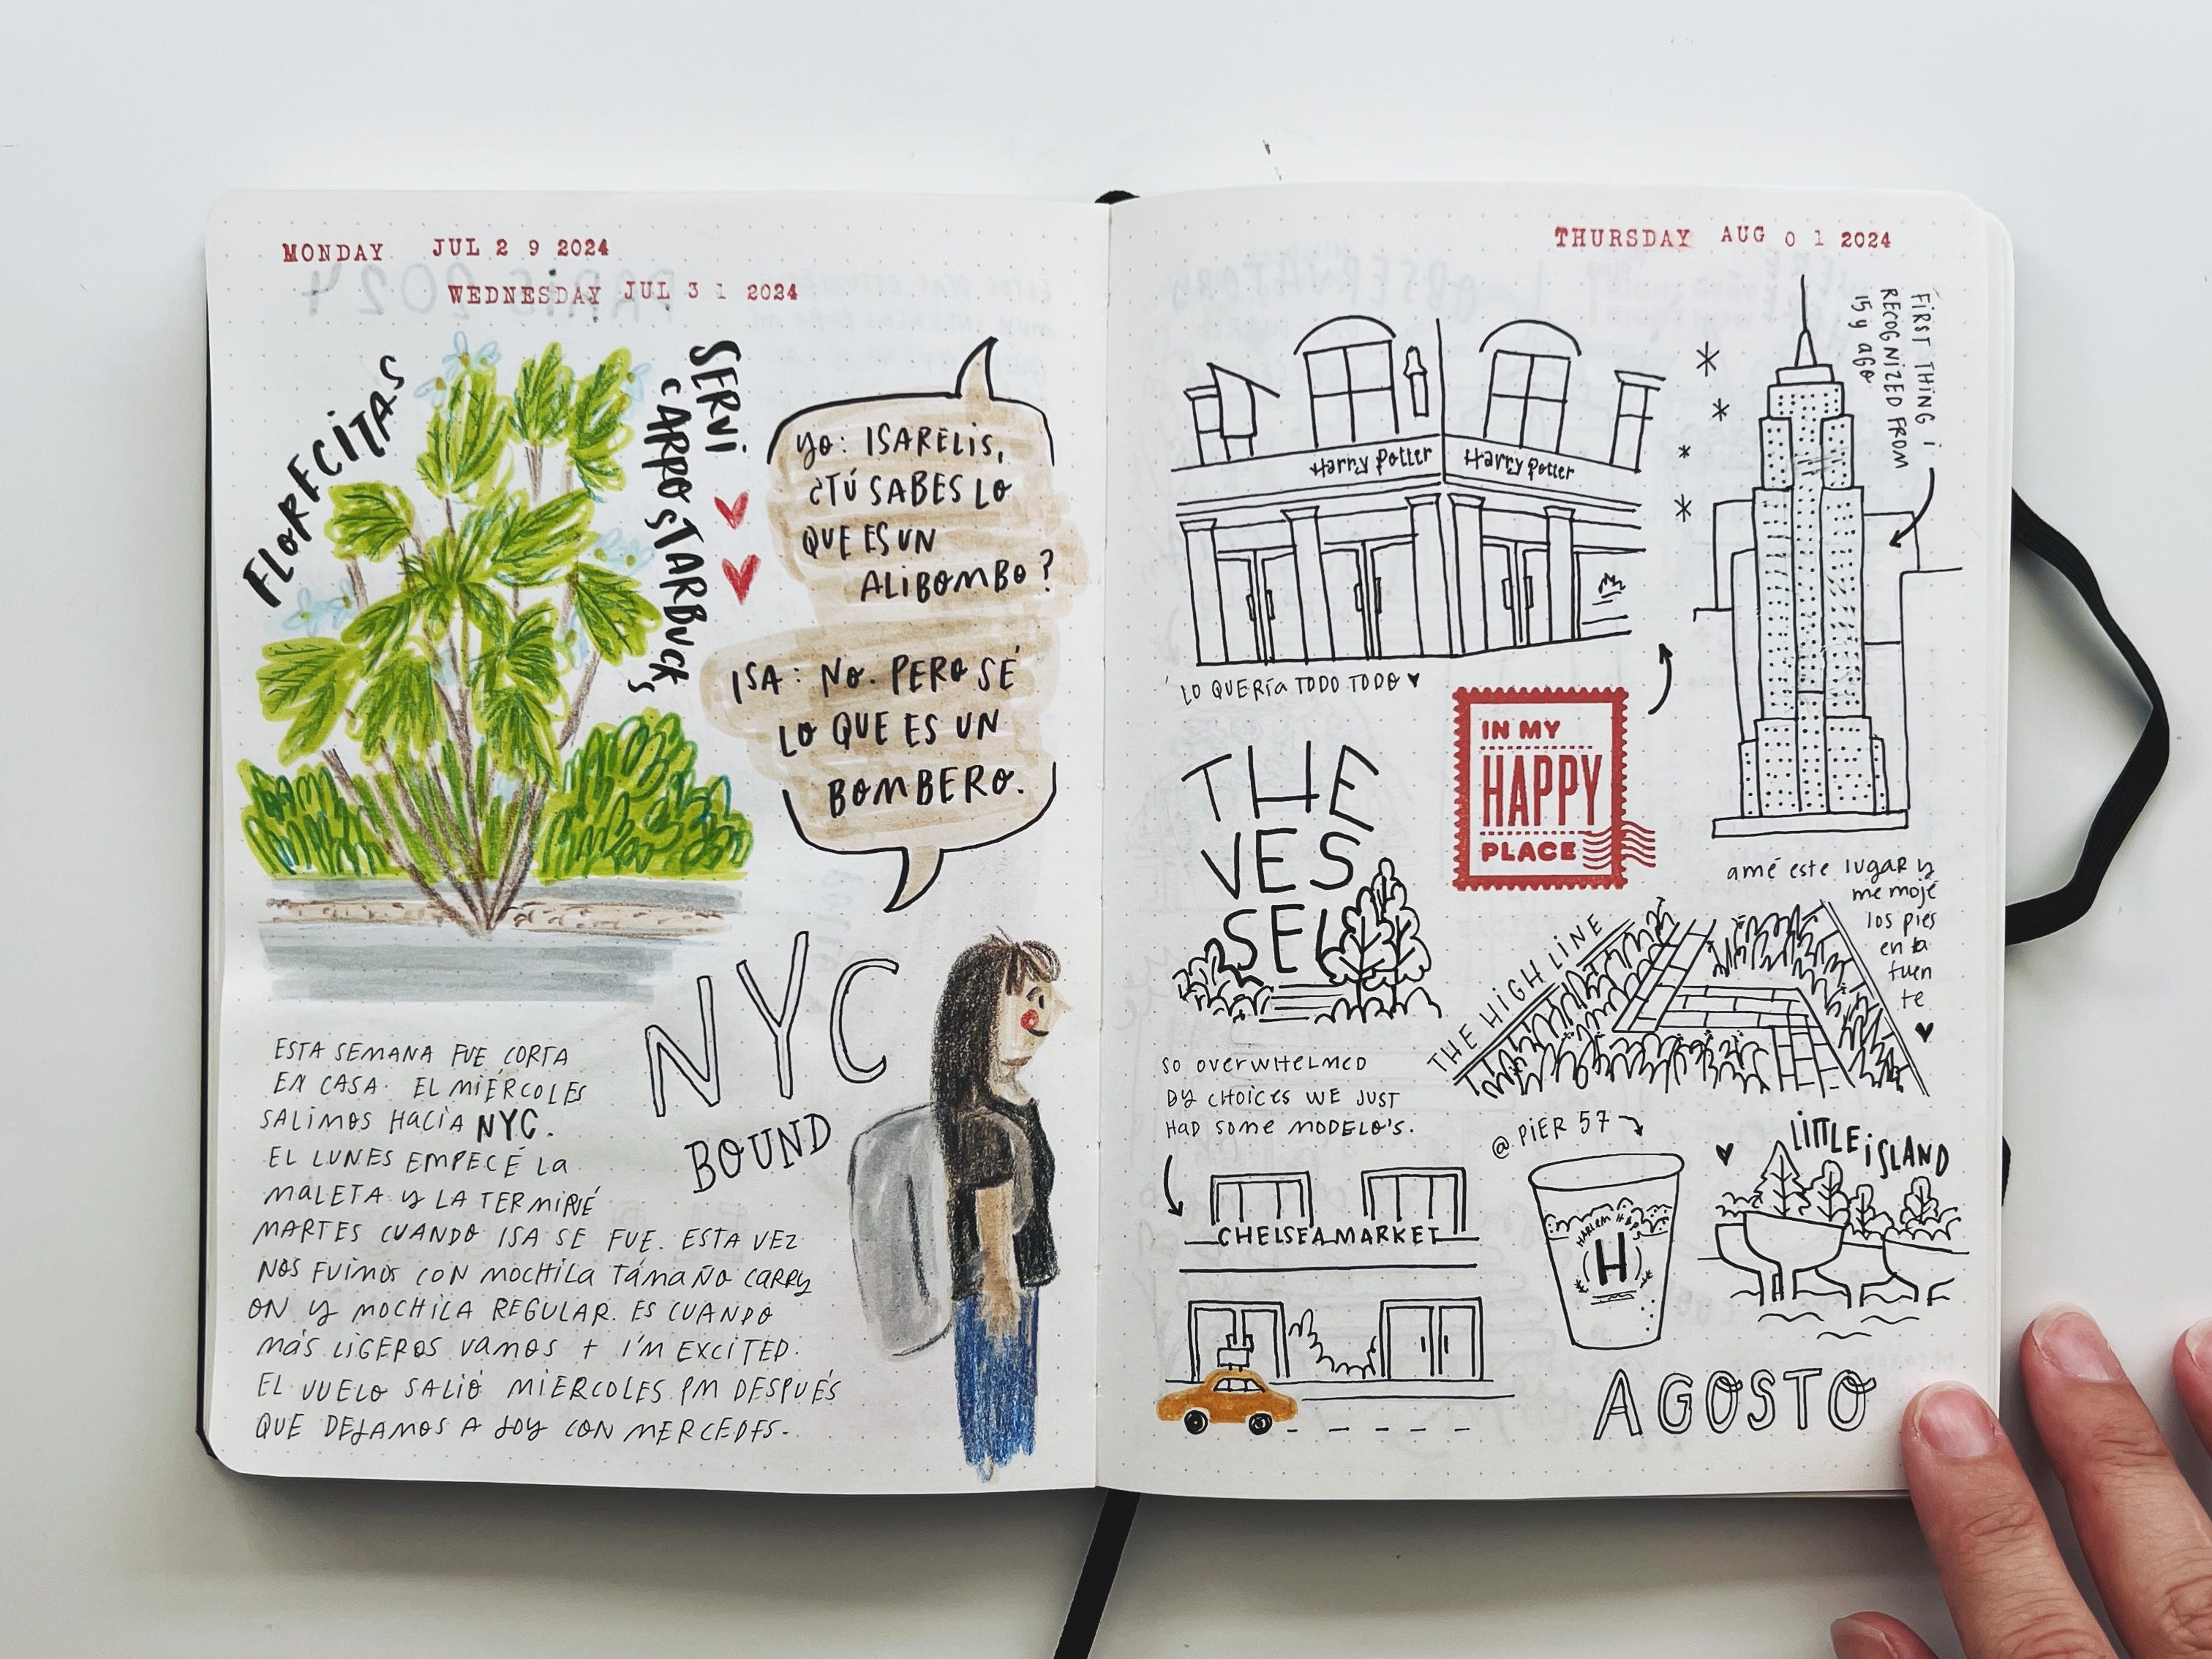 MONDAY JUL 29 2024
WEDNESDAY JUL 31 2024
FLORECITAS
SERVI
CARRO STARBUCK
S
yo: ISARELIS,
¿TÚ SABES LO
QUE ES UN
ALIBOMBO?
ISA: NO. PERO SÉ
LO QUE ES UN
BOMBERO.
NYC
BOUND
ESTA SEMANA FUE CORTA
EN CASA. EL MIÉRCOLES
SALIMOS HACIA NYC.
EL LUNES EMPECÉ LA
MALETA Y LA TERMINÉ
MARTES CUANDO ISA SE FUE. ESTA VEZ
NOS FUIMOS CON MOCHILA TAMAÑO CARRY
ON Y MOCHILA REGULAR. ES CUANDO
MÁS LIGEROS VAMOS + I'M EXCITED.
EL VUELO SALIÓ MIÉRCOLES PM DESPUÉS
QUE DEJAMOS A JOY CON MERCEDES.
THURSDAY AUG 01 2024
FIRST THING I
RECOGNIZED FROM
15 y ago
Harry Potter Harry Potter
LO QUERÍA TODO TODO
IN MY
HAPPY
PLACE
THE
VES
SEL
amé este lugar y
me mojé
los pies
en la
fuen
te
THE HIGH LINE
SO OVERWHELMED
BY CHOICES WE JUST
HAD SOME MODELO'S.
@ PIER 57
LITTLE ISLAND
CHELSEA MARKET
HARLEM
H
AGOSTO